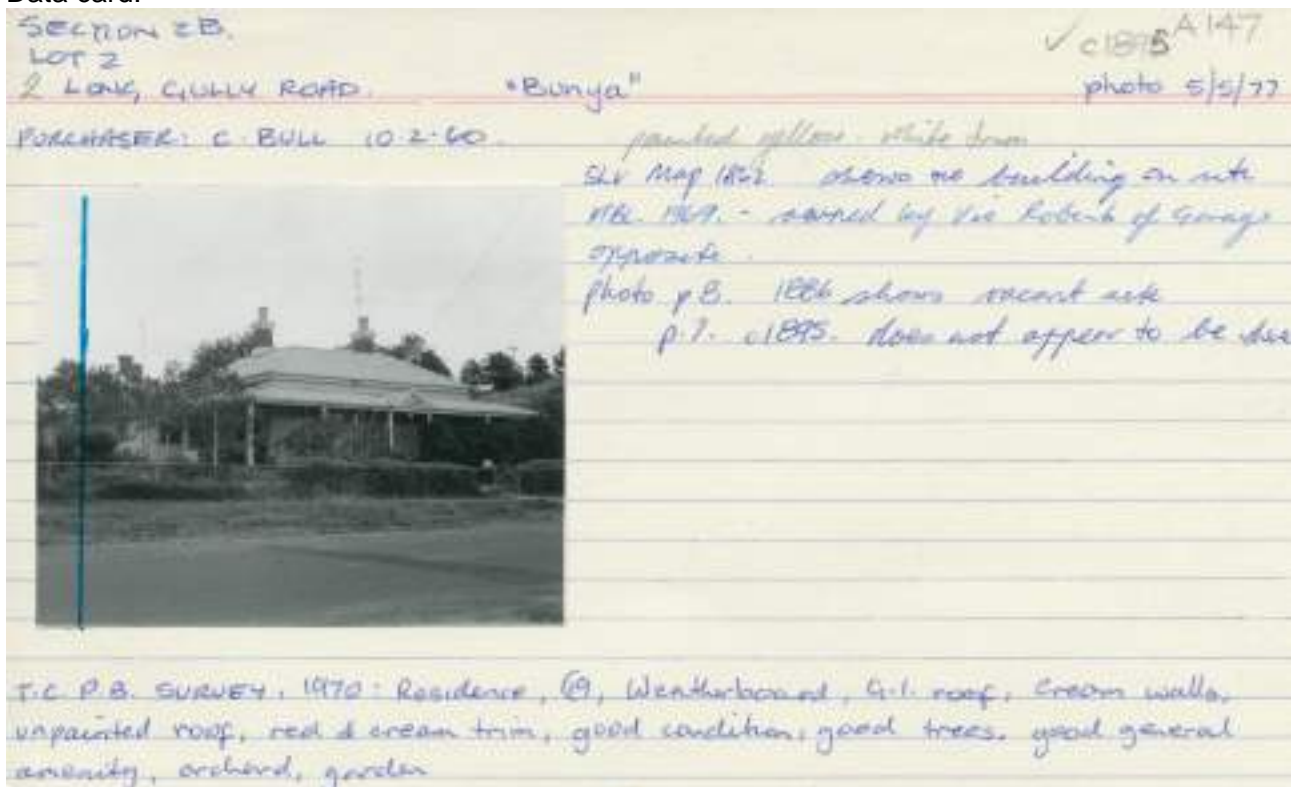 Data card:
SECTION 2B.
LOT 2
2 LONG GULLY ROAD. "Bunya"
✓ c1895 A147
photo 5/5/77
PURCHASER: C. BULL 10.2.60.
painted yellow. white trim
SLV Map 1862. shows no building on site
1969. - owned by Vic Roberts of Garage
opposite.
Photo p 8. 1886 shows vacant site
p.7. c1895. does not appear to be
T.C.P.B. SURVEY, 1970: Residence, Weatherboard, G.I. roof, cream walls,
unpainted roof, red & cream trim, good condition, good trees, good general
amenity, orchard, garden